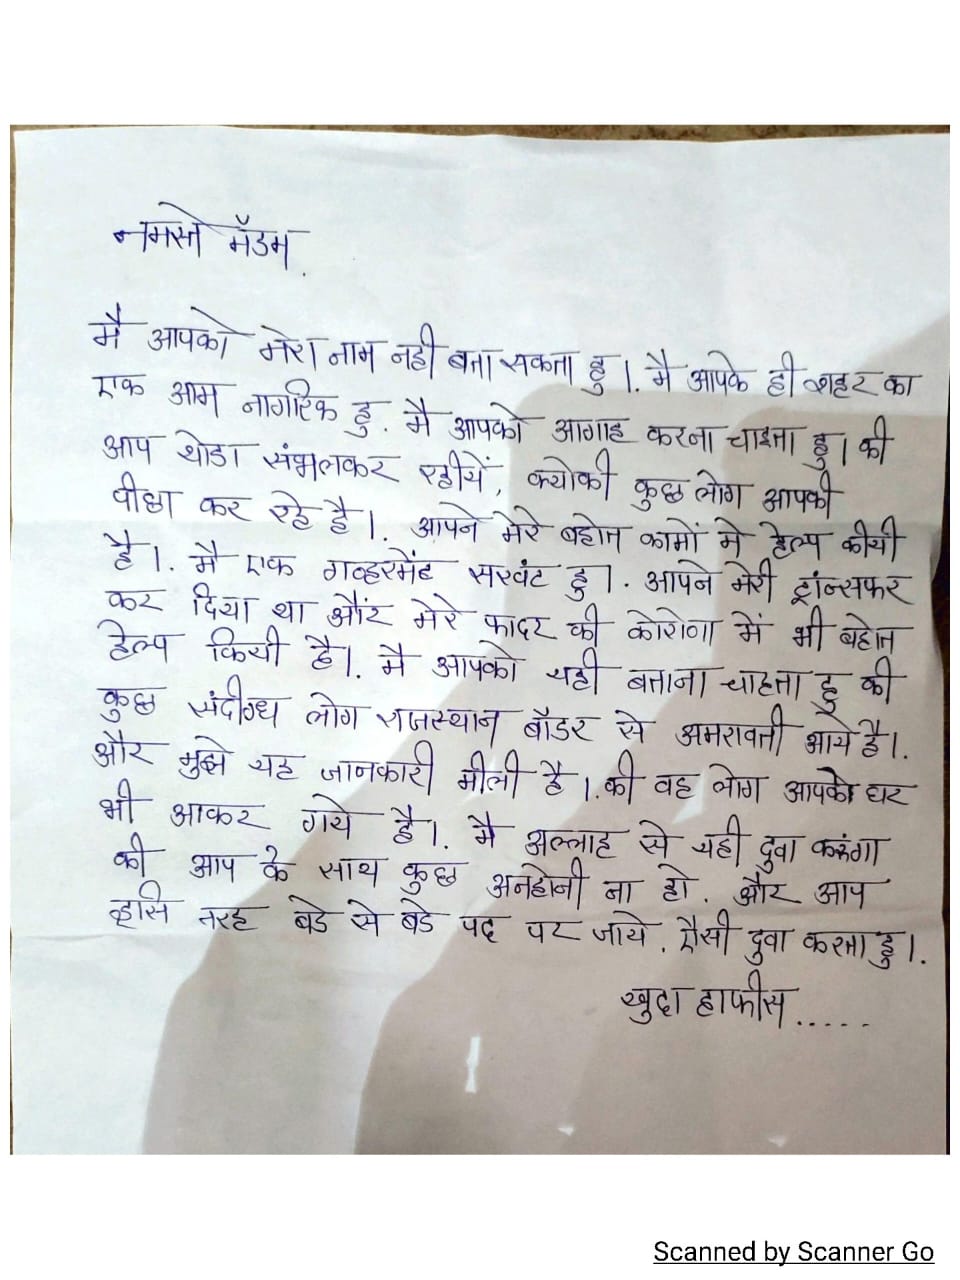 नमस्ते मॅडम.
मै आपको मेरा नाम नही बता सकता हु।. मै आपके ही शहर का
एक आम नागरिक हु. मै आपको आगाह करना चाहता हु। की
आप थोडा संभलकर रहीयें, क्योकी कुछ लोग आपकी
पीछा कर रहे है।. आपने मेरे बहोत कामों मे हेल्प कीयी
है।. मै एक गव्हरमेंट सरवंट हु।. आपने मेरी ट्रांन्सफर
कर दिया था औंर मेरे फादर की कोरोना में भी बहोत
हेल्प कियी है।. मै आपको यही बताना चाहता हु की
कुछ संदीग्ध लोग राजस्थान बॉडर से अमरावती आये है।.
और मुझे यह जानकारी मीली है।. की वह लोग आपके घर
भी आकर गये है।. मै अल्लाह से यही दुवा करुंगा
की आप के साथ कुछ अनहोनी ना हो. और आप
इसि तरह बडे से बडे पद पर जाये. ऐसी दुवा करता हु।.
खुदा हाफीस.....
Scanned by Scanner Go